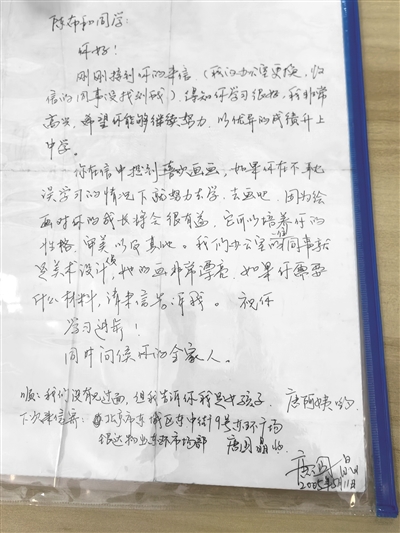 陈布和同学：
你好！
刚刚接到你的来信（我们办公室更换，收
信的同事没找到我）。得知你学习很好，我非常
高兴，希望你能够继续努力，以优异的成绩升上
中学。
你在信中提到喜欢画画，如果你在不耽
误学习的情况下就努力去学，去画吧，因为绘
画对你的成长将会很有益，它可以培养你的
性格、审美以及其他。我们办公室的同事就
是美术设计，她的画非常漂亮，如果你需要
什么材料，请来信告诉我。 祝你
学习进步！
同时问侯你的全家人。
顺：我们没有见过面，但我告诉你我是女孩子，唐阿姨
下次来信寄：北京市东城区东中街9号东环广场
物业东环市场部 唐国晶收
2005年 月11日